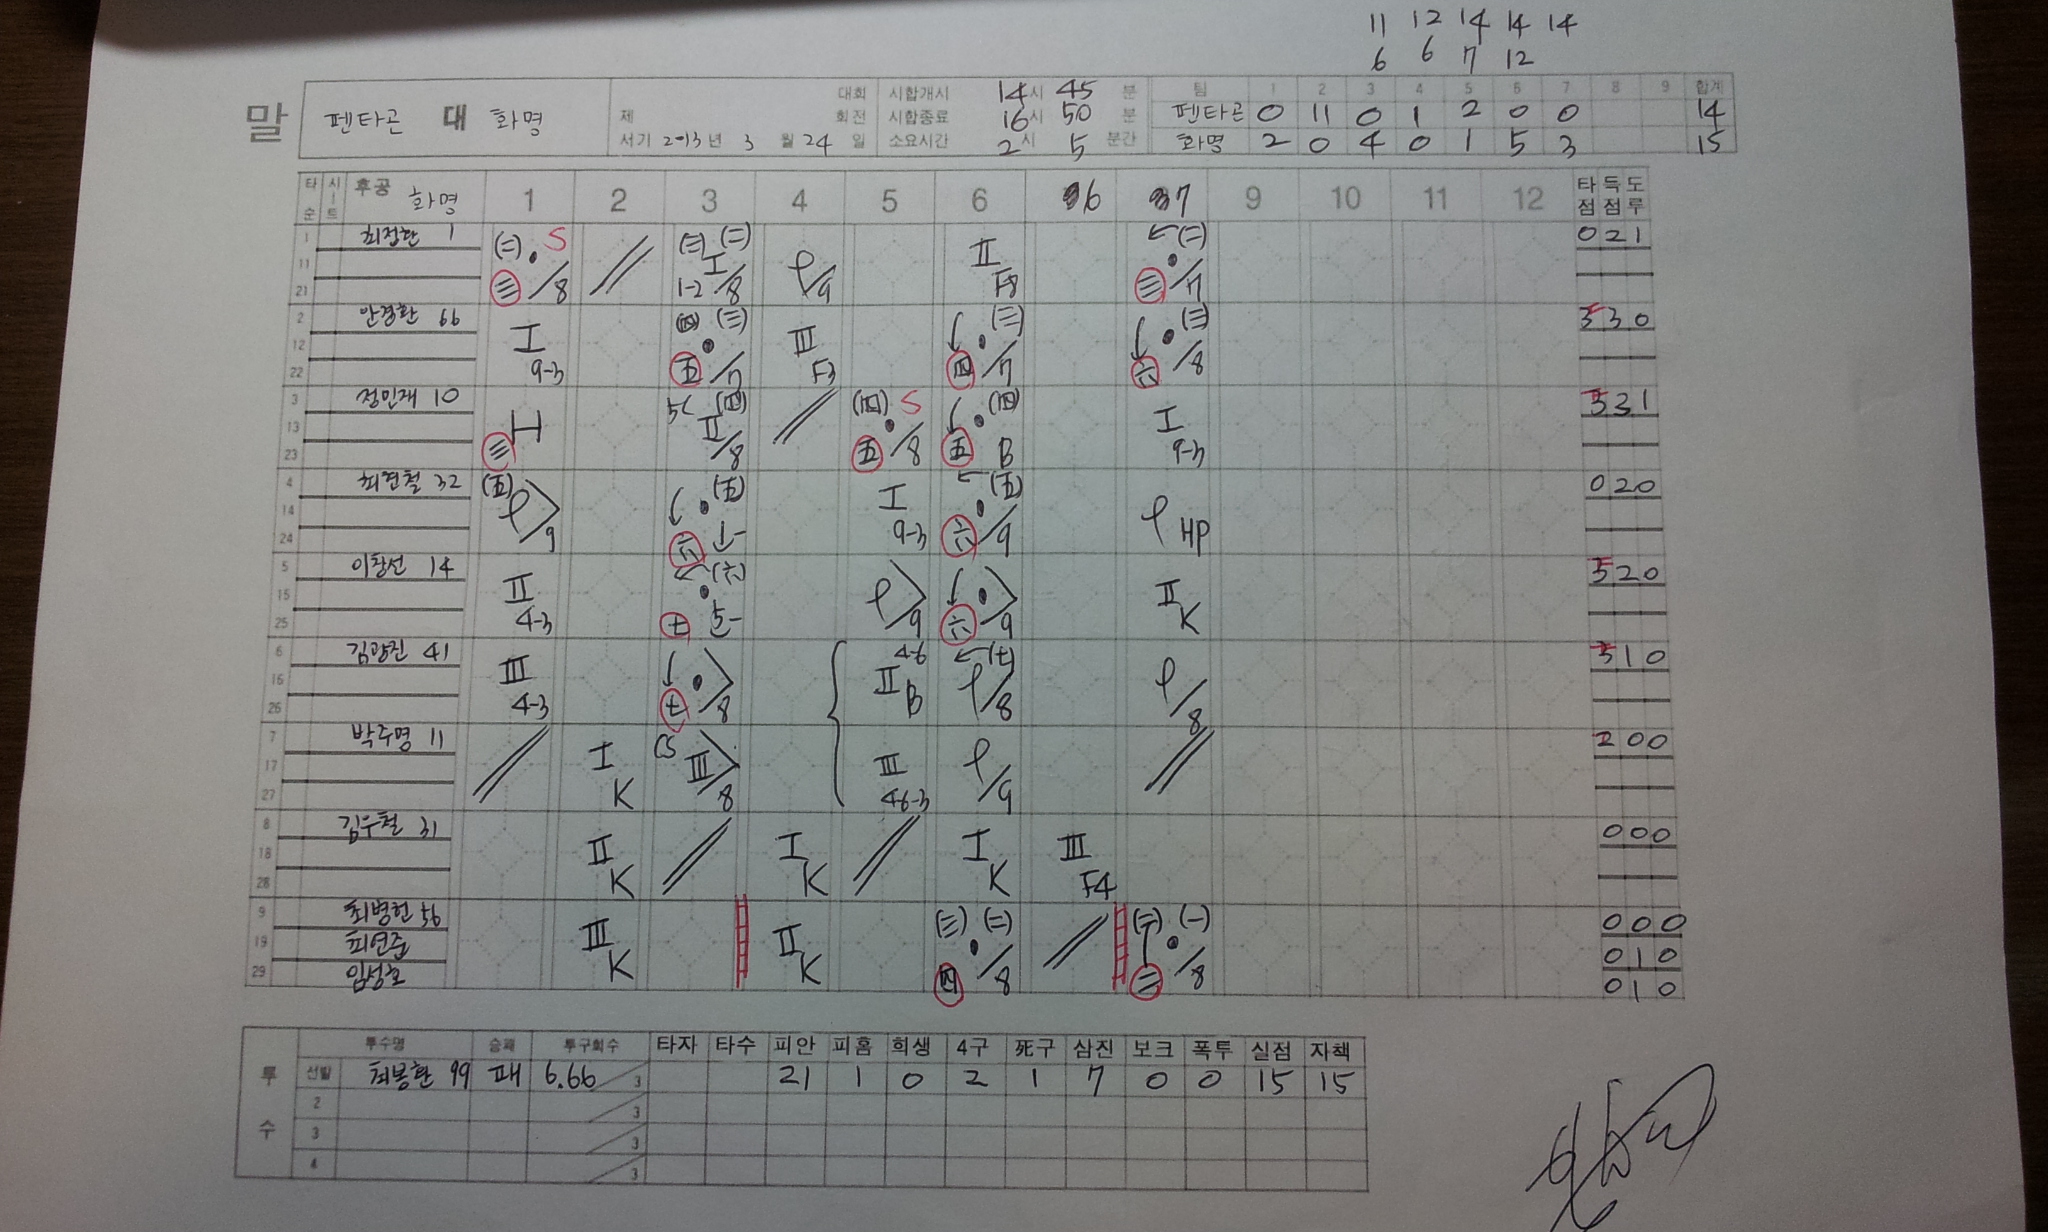 11 12 14 14 14
6 6 7 12
말 펜타곤 대 화명
제 대회 회전
서기 2013년 3월 24일
시합개시 14시 45분
시합종료 16시 50분
소요시간 2시 5분간
팀 1 2 3 4 5 6 7 8 9 합계
펜타곤 0 11 0 1 2 0 0 14
화명 2 0 4 0 1 5 3 15
타순 시트 후공 화명 1 2 3 4 5 6 6 7 9 10 11 12 타점 득점 도루
1 11 21 1 (二) S 三 /8 (三) (二) I 1-2 /8 /9 II F8 (二) 三 /7 0 2 1
2 12 22 안경환 66 I 9-3 (四) (三) 五 /7 III F3 (三) 四 /7 (三) 六 /8 3 3 0
3 13 23 정민재 10 H 三 (四) II /8 (四) S 五 /8 (四) 五 B I 9-3 3 1
4 14 24 32 (五) 9 (五) 六 I 9-3 (五) 六 /9 HP 0 2 0
5 15 25 이창선 14 II 4-3 (六) 七 9 六 9 II K 2 0
6 16 26 김광진 41 III 4-3 七 /8 4-6 II B (七) /8 /8 1 0
7 17 27 박주영 11 I K CS III /8 III 46-3 /9 2 0 0
8 18 28 김우철 31 II K I K I K III F4 0 0 0
9 19 29 최병헌 56 III K II K (三) (二) 四 /8 (二) (一) 三 /8 0 0 0
0 1 0
임성호 0 1 0
투수 투수명 승패 투구회수 타자 타수 피안 피홈 희생 4구 死구 삼진 보크 폭투 실점 자책
선발 최봉환 99 패 6.66 3 21 1 0 2 1 7 0 0 15 15
2 3
3 3
4 3